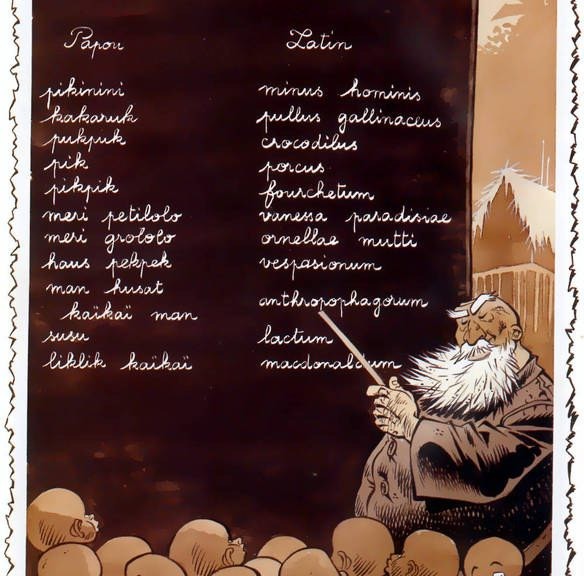 Papou Latin
pikinini minus hominis
kakaruk pullus gallinaceus
pukpuk crocodilus
pik porcus
pikpik fourchetum
meri petilolo vanessa paradisiae
meri grololo ornellae mutti
haus pekpek vespasionum
man husat
kaïkaï man anthropophagorum
susu lactum
liklik kaïkaï macdonaldum